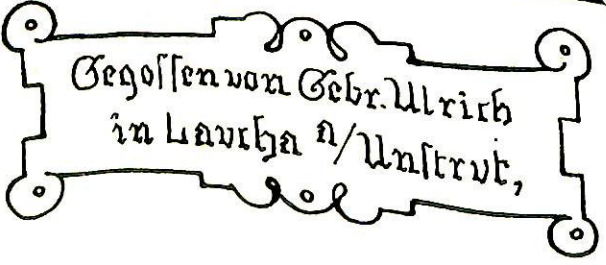 Gegossen von Gebr. Ulrich
in Laucha a/Unstrut,